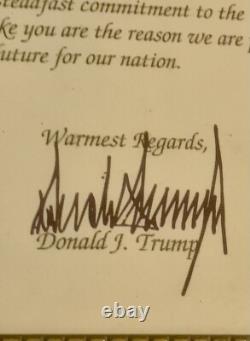 steadfast commitment to the
ke you are the reason we are
future for our nation.
Warmest Regards,
Donald J. Trump
ebay